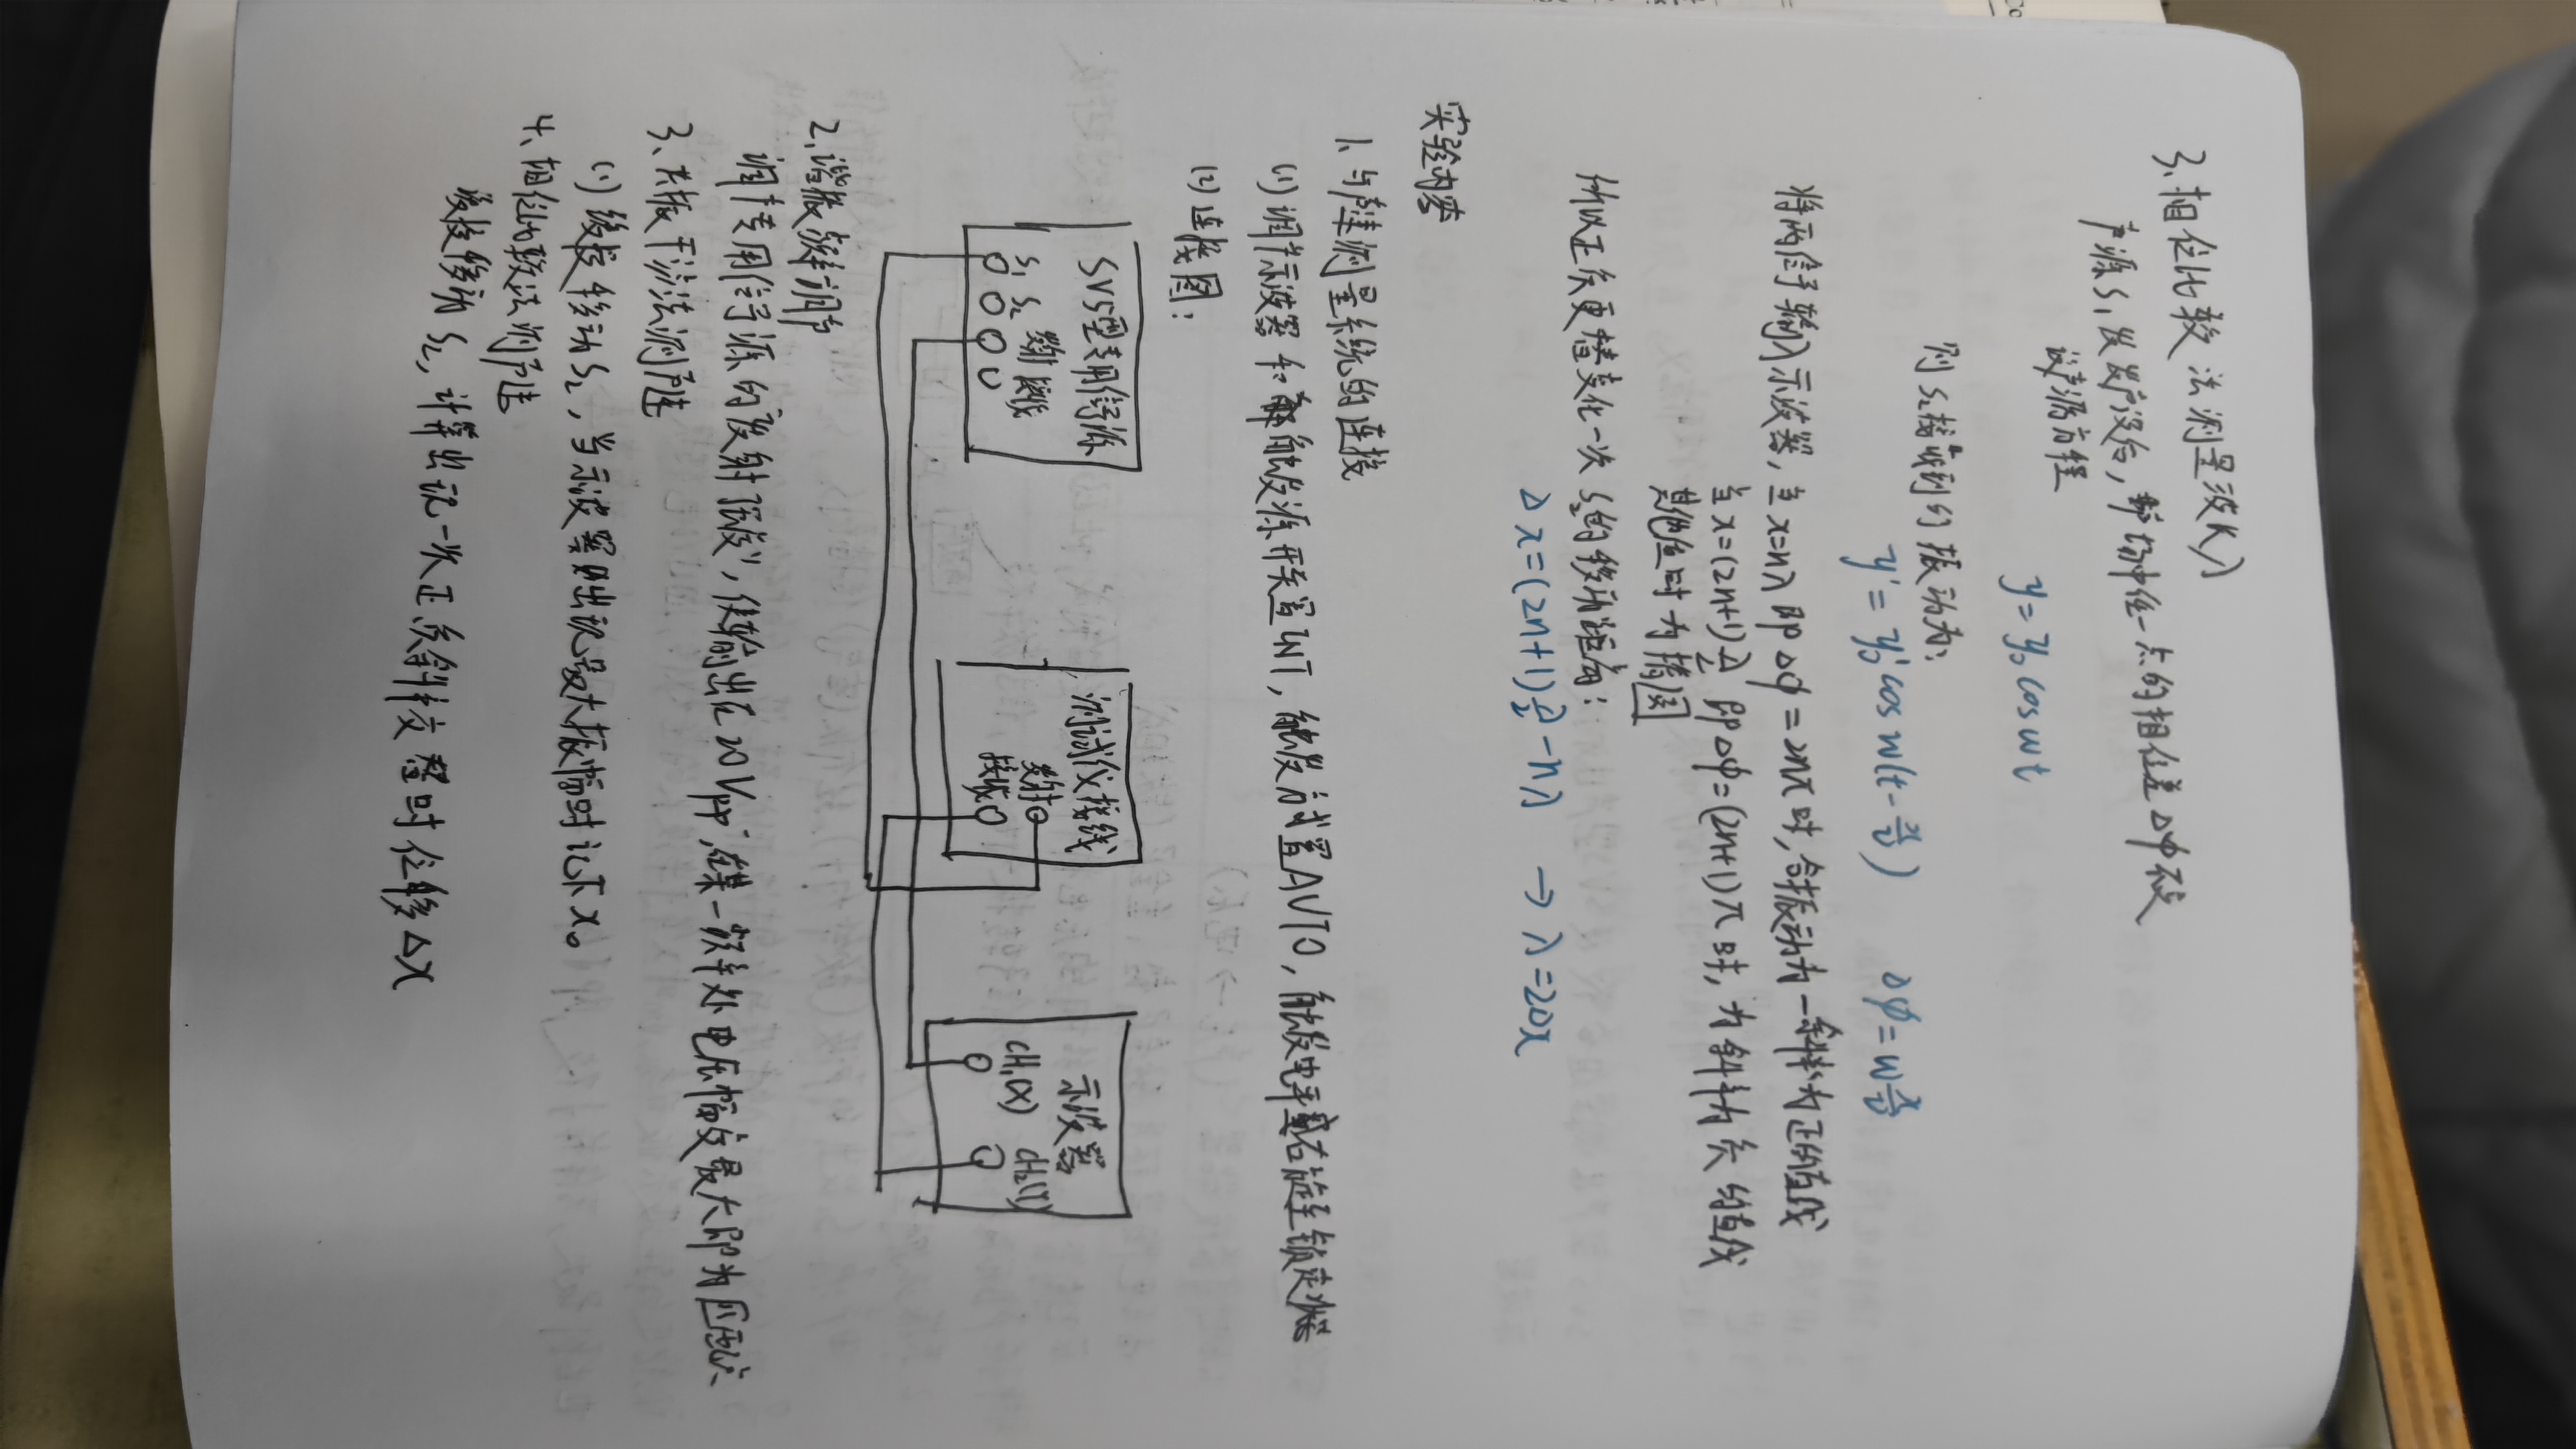 3、相位比较法测量波长λ
声源S₁发发声波后，声场中任一点的相位差Δφ不变
设声源方程
y=y₀cosωt
则S₂接收到的振动为：
y'=y₀'cosω(t-x/v)  Δφ=ωx/v
将两信号输入示波器，当x=nλ即Δφ=2nπ时，合振动为一斜率为正的直线
当x=(2n+1)λ/2 即Δφ=(2n+1)π时，为斜率为负的直线
其他值时为椭圆
所以正负更替变化一次S₂的移动距离：
Δx=(2n+1)λ/2-nλ → λ=2Δx
实验内容
1、与声速测量系统的连接
(1)调节示波器和 触发源开关置INT，触发方式置AUTO，触发电平 右旋至锁定状
(2)连接图：
SVS型专用信号源
S₁ S₂ 发射 接收
测试仪接线
发射
接收
示波器
CH₁(X) CH₂(Y)
2、谐振频率调节
调节专用信号源的"发射强度"，使输出在20Vpp，在某一频率处电压幅度最大即为匹配点
3、共振干涉法测声速
(1)缓慢移动S₂，当示波器 出现最大振幅时记下x₀
4、相位比较法测声速
缓慢移动S₂，计算出现一次正负斜率交替时位移Δx